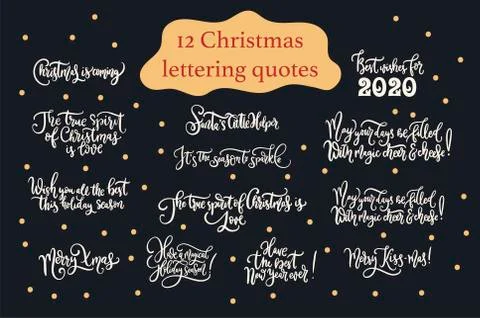 12 Christmas
lettering quotes
Christmas is coming
Best wishes for
2020
The true spirit
of Christmas
is love
Santa's Little Helper
It's the season to sparkle
May your days be filled
With magic cheer & cheese!
Wish you all the best
this holiday season
The true spirit of Christmas is
Love
May your days be filled
With magic cheer & cheese!
Merry Xmas
Have a magical
Holiday season!
Have
the best
New year ever!
Merry Kiss-mas!